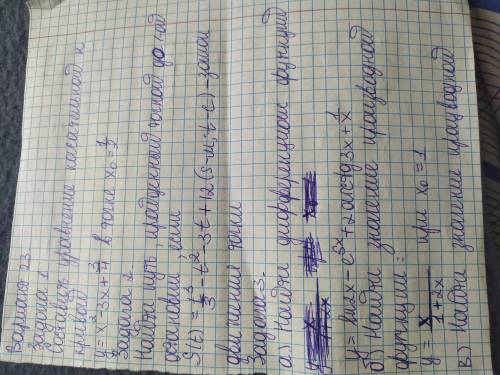 Вариант 23
Задача 1
Составить уравнение касательной к
кривой
y = x² - 3x + 4 в точке x₀ = 1/2
Задача 2.
Найти путь, пройденный точкой до её
остановки, если
S(t) = t³/3 - t² - 3t + 12 (s-м, t-с) - закон
движения точки
Задача 3.
а) Найти дифференциал функции
y = ln2x - e⁵ˣ + 2 arctg 3x + 1/x
б) Найти значение производной
функции:
y = x/(1+2x) при x₀ = 1
в.) Найти значение производной